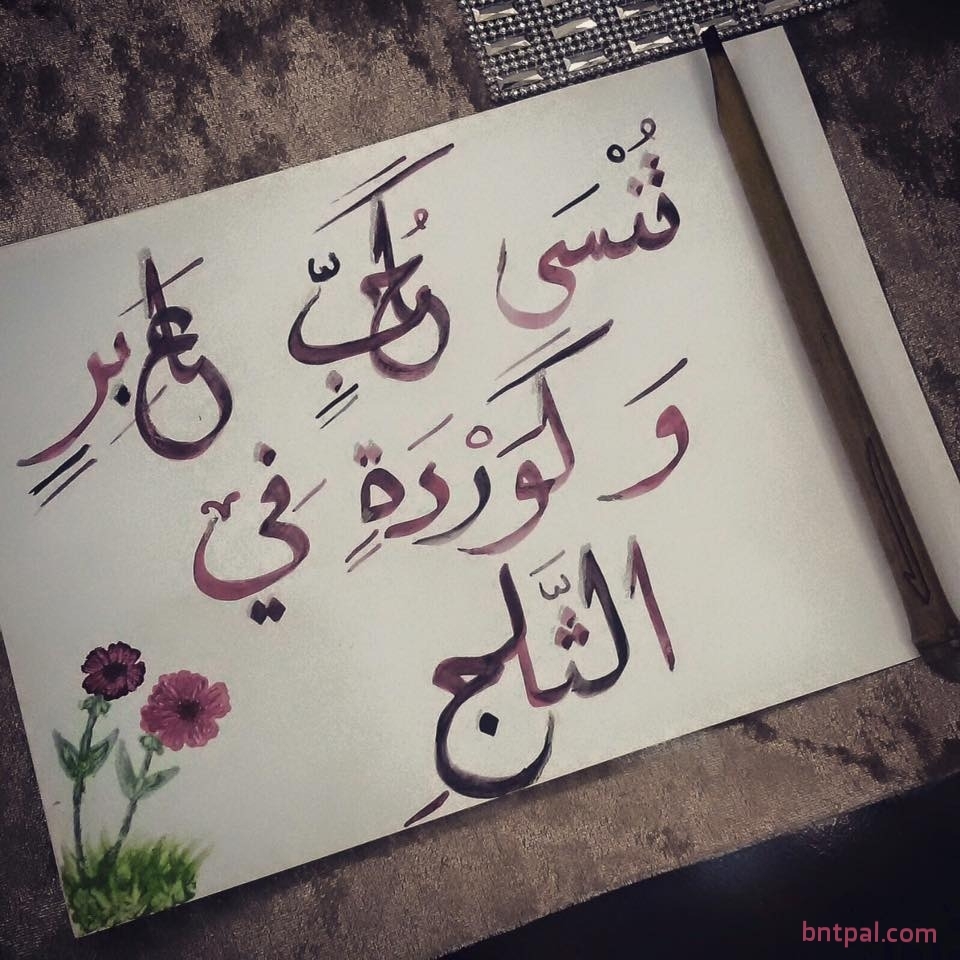 تُنْسَى كَحُبٍّ عَابرٍ
وَ كَوَرْدَةٍ فِي
الثَّلجِ
bntpal.com